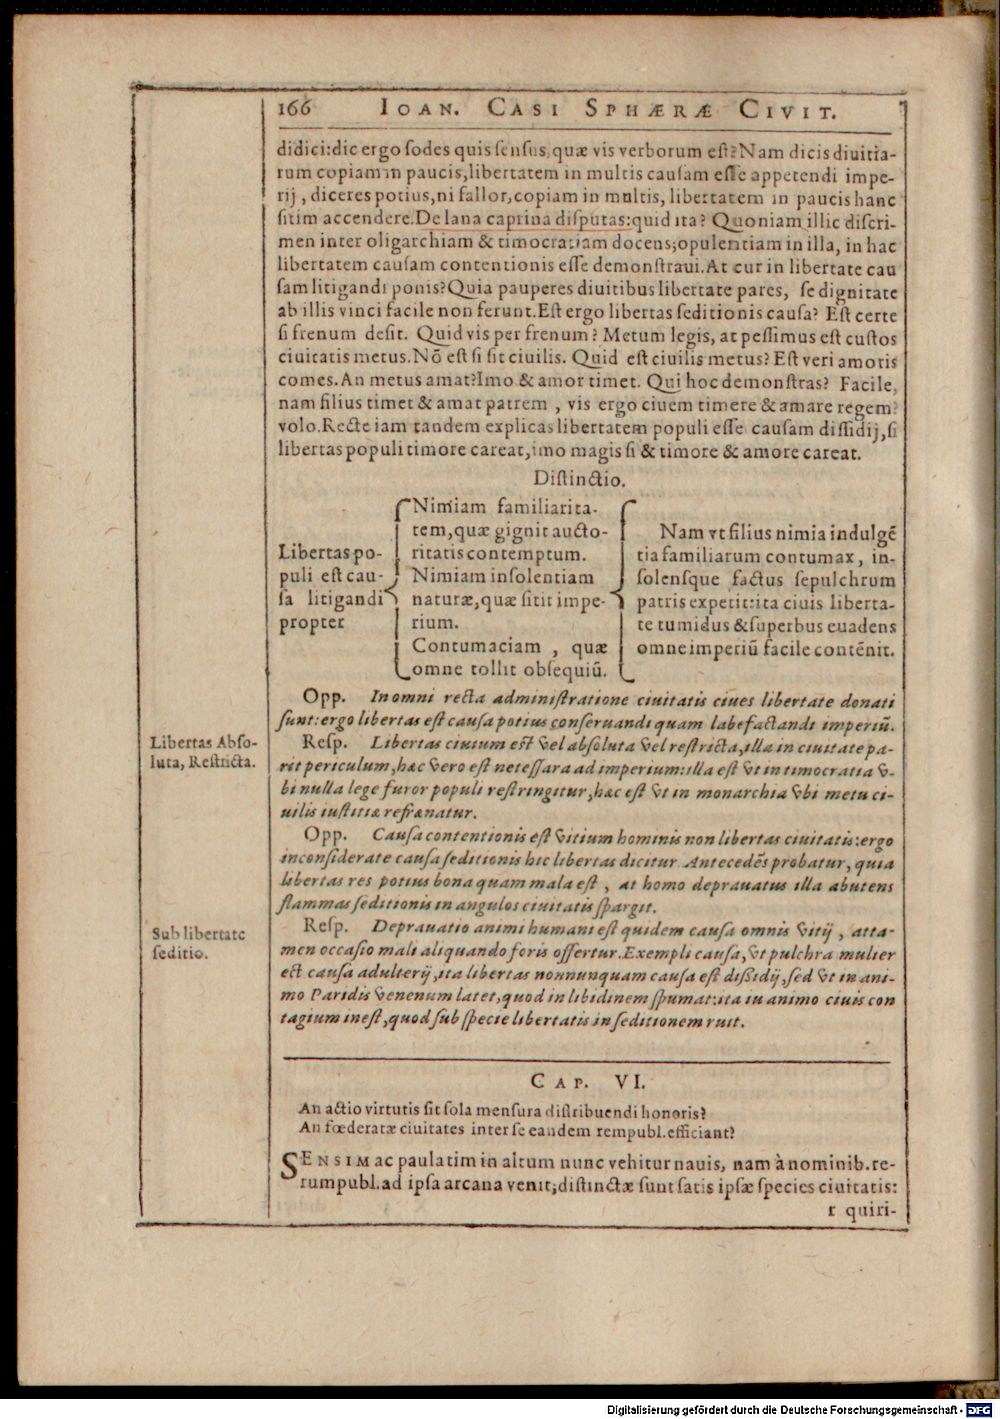 166 IOAN. CASI SPHÆRÆ CIVIT.
didici:dic ergo sodes quis sensus, quæ vis verborum est? Nam dicis diuitia-
rum copiam in paucis,libertatem in multis causam esse appetendi impe-
rij, diceres potius,ni fallor,copiam in multis, libertatem in paucis hanc
sitim accendere.De lana caprina disputas:quid ita? Quoniam illic discri-
men inter oligarchiam & timocratiam docens;opulentiam in illa, in hac
libertatem causam contentionis esse demonstraui.At cur in libertate cau
sam litigandi ponis?Quia pauperes diuitibus libertate pares, se dignitate
ab illis vinci facile non ferunt.Est ergo libertas seditionis causa? Est certe
si frenum desit. Quid vis per frenum? Metum legis, at pessimus est custos
ciuitatis metus.Nō est si sit ciuilis. Quid est ciuilis metus? Est veri amoris
comes.An metus amat?Imo & amor timet. Qui hoc demonstras? Facile,
nam filius timet & amat patrem, vis ergo ciuem timere & amare regem?
volo.Recte iam tandem explicas libertatem populi esse causam dissidij,si
libertas populi timore careat,imo magis si & timore & amore careat.
Distinctio.
Libertas po-
puli est cau-
sa litigandi
propter
Nimiam familiarita-
tem,quæ gignit aucto-
ritatis contemptum.
Nimiam insolentiam
naturæ,quæ sitit impe-
rium.
Contumaciam, quæ
omne tollit obsequiū.
Nam vt filius nimia indulgē
tia familiarum contumax, in-
solensque factus sepulchrum
patris expetit:ita ciuis liberta-
te tumidus & superbus euadens
omne imperiū facile contēnit.
Opp. In omni recta administratione ciuitatis ciues libertate donati
sunt:ergo libertas est causa potius conseruandi quam labefactandi imperiū.
Libertas Abso-
luta, Restricta.
Resp. Libertas ciuium est vel absoluta vel restricta,illa in ciuitate pa-
rit periculum,hæc vero est netessara ad imperium:illa est vt in timocratia v-
bi nulla lege furor populi restringitur,hæc est vt in monarchia vbi metu ci-
uilis iustitiæ refrænatur.
Opp. Causa contentionis est vitium hominis non libertas ciuitatis:ergo
inconsiderate causa seditionis hic libertas dicitur. Antecedēs probatur, quia
libertas res potius bona quam mala est, at homo deprauatus illa abutens
flammas seditionis in angulos ciuitatis spargit.
Sub libertate
seditio.
Resp. Deprauatio animi humani est quidem causa omnis vitij, atta-
men occasio mali aliquando foris offertur.Exempli causa,vt pulchra mulier
est causa adulterij,ita libertas nonnunquam causa est dissidij,sed vt in ani-
mo Paridis venenum latet,quod in libidinem spumat:ita in animo ciuis con
tagium inest,quod sub specie libertatis in seditionem ruit.
CAP. VI.
An actio virtutis sit sola mensura distribuendi honoris?
An fœderatæ ciuitates inter se eandem rempubl.efficiant?
SENSIM ac paulatim in altum nunc vehitur nauis, nam à nominib.re-
rumpubl.ad ipsa arcana venit;distinctæ sunt satis ipsæ species ciuitatis:
r quiri-
Digitalisierung gefördert durch die Deutsche Forschungsgemeinschaft - DFG